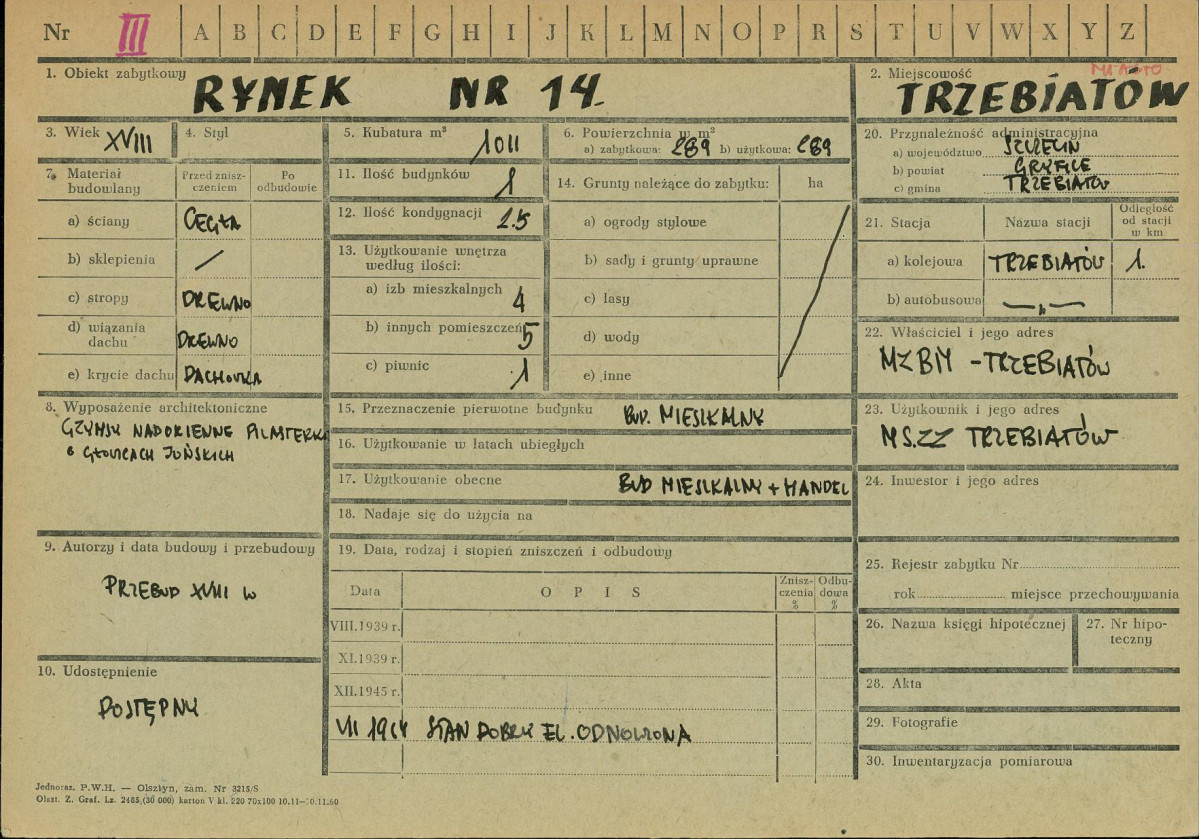 Nr III A B C D E F G H I J K L M N O P R S T U V W X Y Z
1. Obiekt zabytkowy RYNEK NR 14.
2. Miejscowość MIASTO
TRZEBIATÓW
3. Wiek XVIII
4. Styl
5. Kubatura m³ 1011
6. Powierzchnia w m²
a) zabytkowa: 289 b) użytkowa: 289
20. Przynależność administracyjna
a) województwo SZCZECIN
b) powiat GRYFICE
c) gmina TRZEBIATÓW
7. Materiał budowlany
Przed zniszczeniem
Po odbudowie
a) ściany CEGŁA
b) sklepienia /
c) stropy DREWNO
d) wiązania dachu DREWNO
e) krycie dachu DACHÓWKA
11. Ilość budynków 1
12. Ilość kondygnacji 2.5
13. Użytkowanie wnętrza
według ilości:
a) izb mieszkalnych 4
b) innych pomieszczeń 5
c) piwnic 1
14. Grunty należące do zabytku: ha
a) ogrody stylowe
b) sady i grunty uprawne
c) lasy
d) wody
e) inne
21. Stacja Nazwa stacji Odległość od stacji w km
a) kolejowa TRZEBIATÓW 1.
b) autobusowa —„—
22. Właściciel i jego adres
MZBM - TRZEBIATÓW
8. Wyposażenie architektoniczne
GZYMSY NADOKIENNE PILASTERKI
o GŁOWICACH JOŃSKICH
15. Przeznaczenie pierwotne budynku BUD. MIESZKALNY
16. Użytkowanie w latach ubiegłych
17. Użytkowanie obecne BUD MIESZKALNY + HANDEL
18. Nadaje się do użycia na
23. Użytkownik i jego adres
MS.ZZ TRZEBIATÓW
24. Inwestor i jego adres
9. Autorzy i data budowy i przebudowy
PRZEBUD XVIII W
10. Udostępnienie
DOSTĘPNY
19. Data, rodzaj i stopień zniszczeń i odbudowy
Data OPIS Zniszczenia % Odbudowa %
VIII.1939 r.
XI.1939 r.
XII.1945 r.
STAN DOBRY EL. ODNOWIONA
25. Rejestr zabytku Nr
rok miejsce przechowywania
26. Nazwa księgi hipotecznej
27. Nr hipoteczny
28. Akta
29. Fotografie
30. Inwentaryzacja pomiarowa
Jednoraz. P.W.H. — Olsztyn, zam. Nr 3215/S
Olszt. Z. Graf. Lz. 2485 (30 000) karton V kl. 220 70x100 10.11—